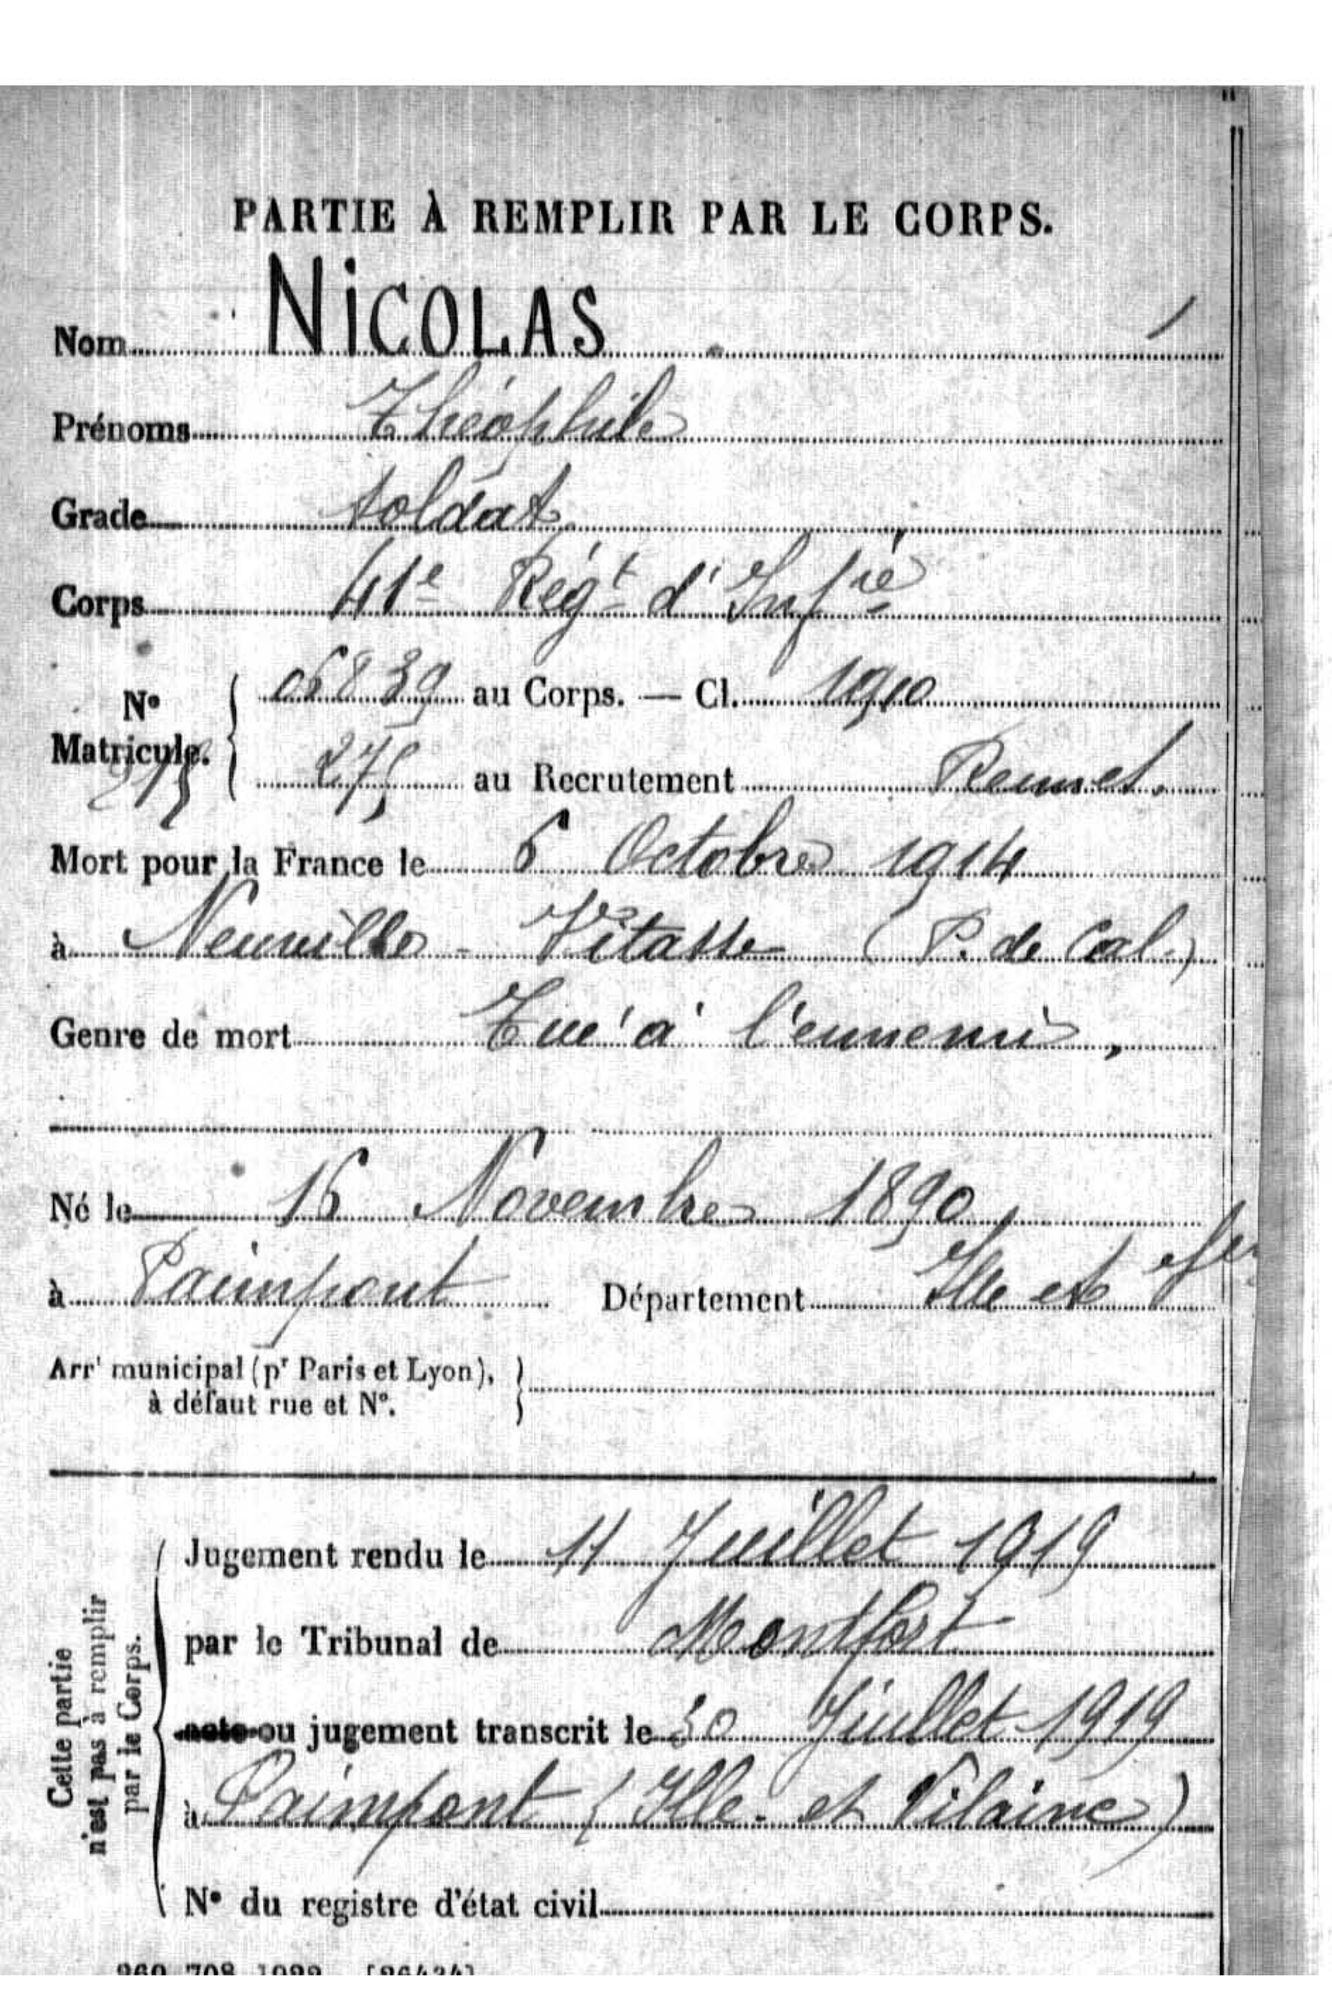 PARTIE À REMPLIR PAR LE CORPS.
Nom NiCOLAS
Prénoms Théophile
Grade soldat
Corps 41e Régt d'Infie
No Matricule. 06839 au Corps. — Cl. 1910
275 275 au Recrutement Rennes.
Mort pour la France le 6 Octobre 1914
à Neuville - Vitasse (P. de Cal.)
Genre de mort Tué à l'ennemi,
Né le 16 Novembre 1890
à Paimpont Département Ille et
Arrt municipal (pr Paris et Lyon),
à défaut rue et No.
Cette partie
n'est pas à remplir
par le Corps.
Jugement rendu le 11 Juillet 1919
par le Tribunal de Montfort
acte ou jugement transcrit le 30 Juillet 1919
à Paimpont (Ille - et Vilaine)
No du registre d'état civil
260 708 1922 [26434]